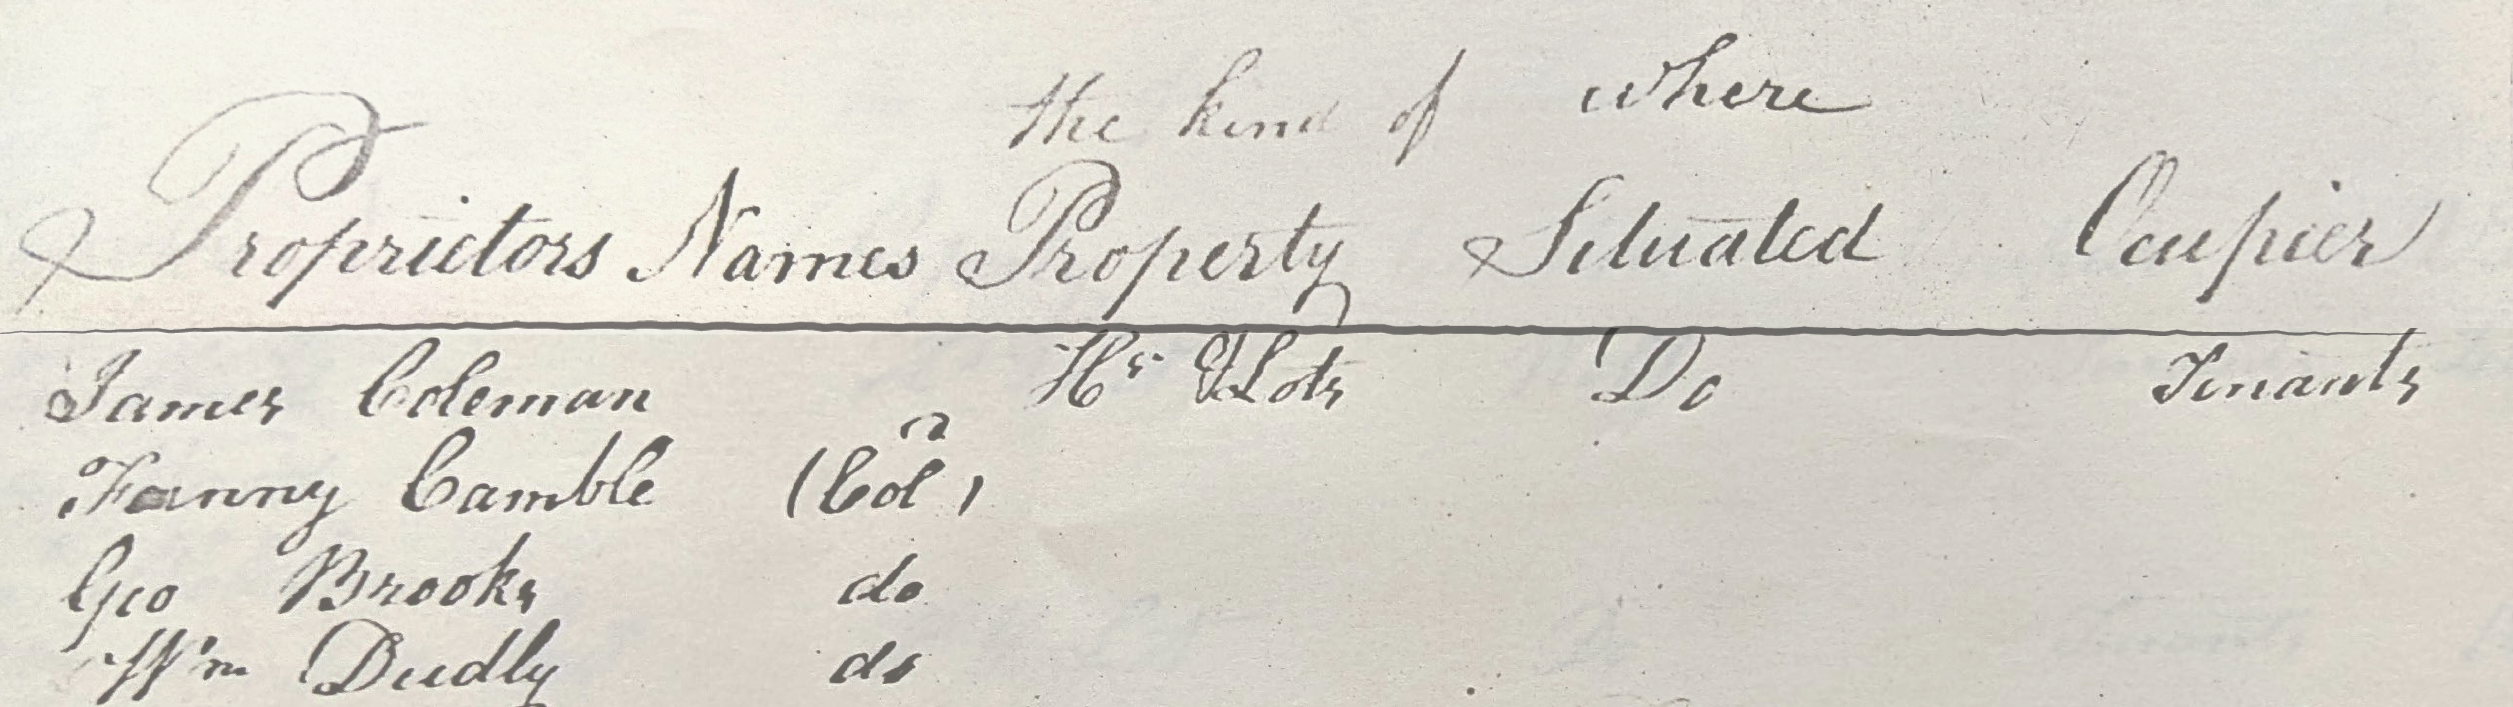 the kind of where
Proprietors Names Property Situated Ocupier
James Coleman Hs & Lots Do Tenants
Fanny Camble (Col)
Geo Brooks do
Wm Dudly do